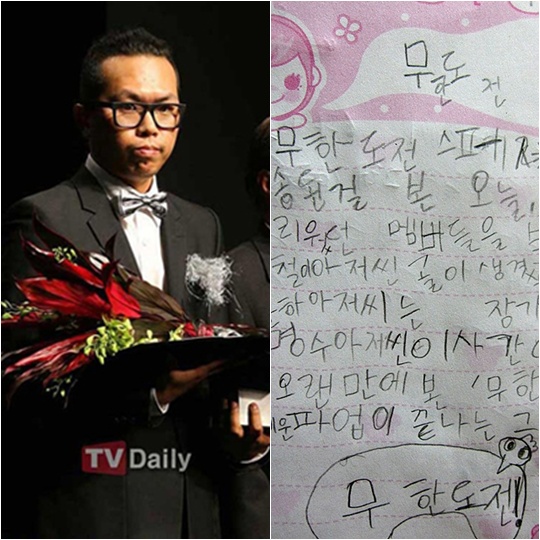 TV Daily
무한도전
무한도전 스페
송된걸 본 오늘,
리웠던 멤버들을
철이아저씬 홀이 생겼
하아저씨는 장가
경수아저씬이사간
오랜만에 본 '무한
파업이 끝나는 그
무한도전!